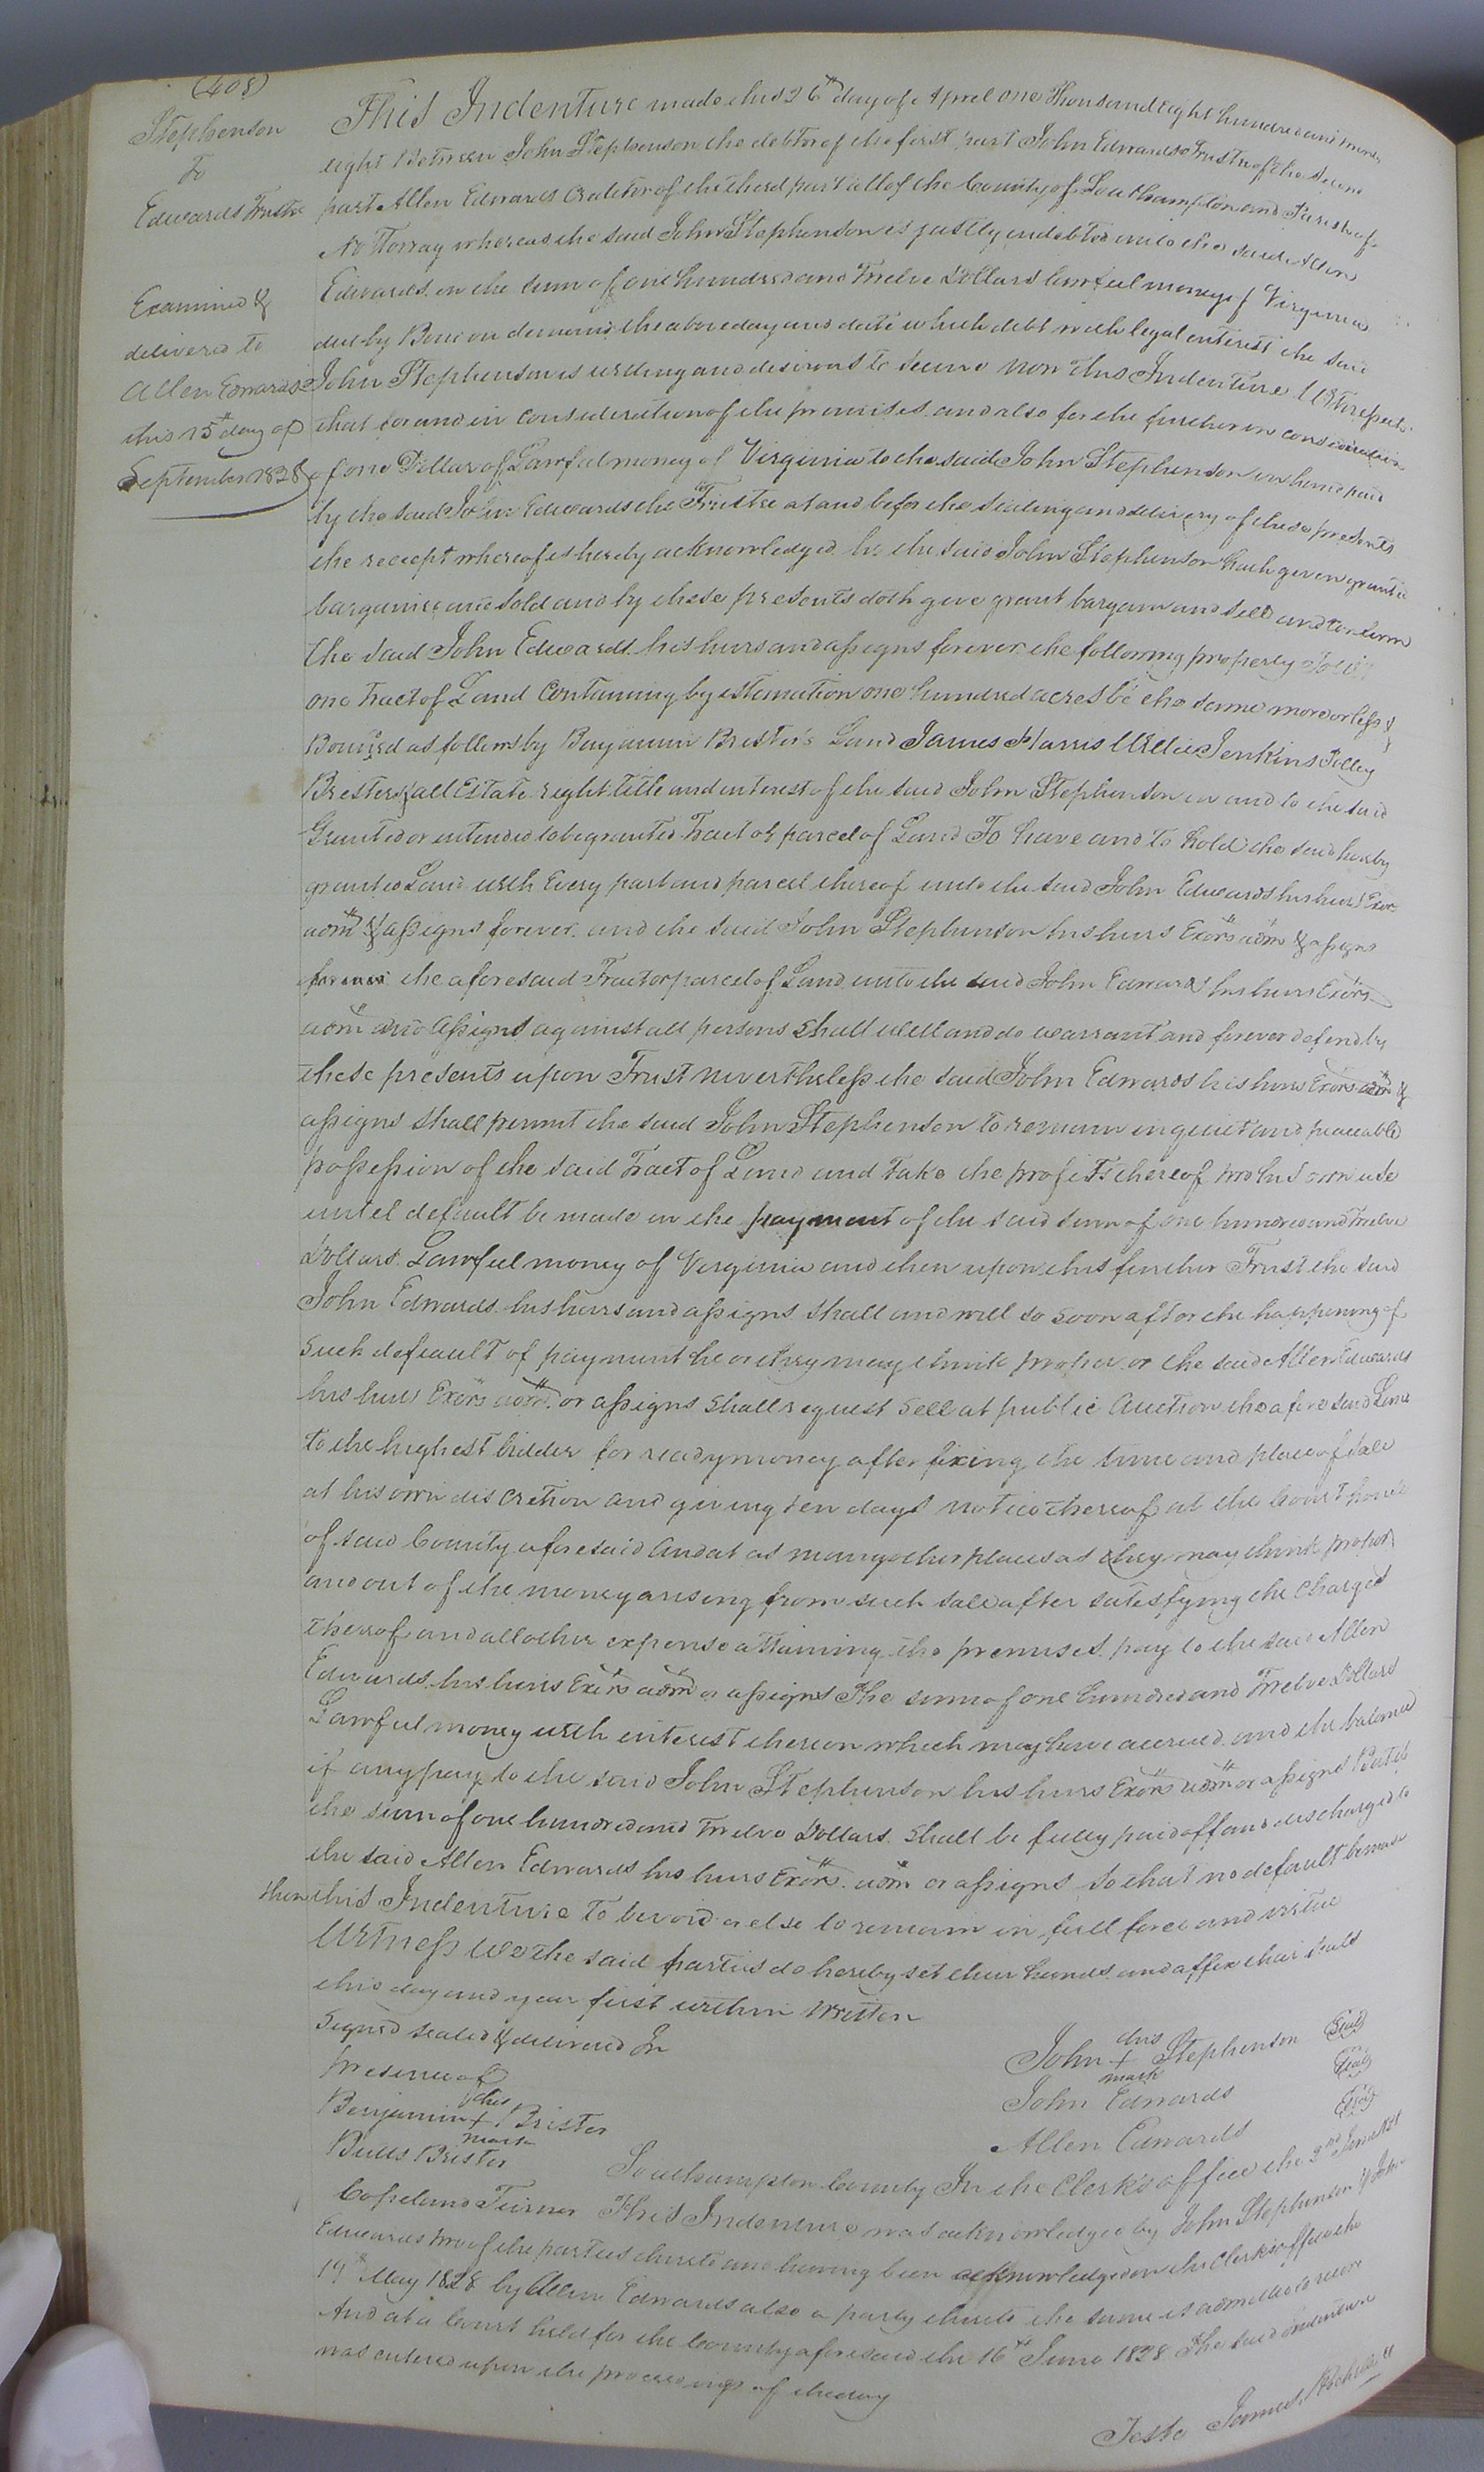 (408)
Stephenson
To
Edwards Trustee
Examined &
delivered to
Allen Edwards
this 15th day of
September 1828
This Indenture made this 26th day of April one thousand eight hundred and twenty
eight Between John Stephenson the debtor of the first part John Edwards Trustee of the second
part Allen Edwards Creditor of the third part all of the County of Southampton and Parish of
Nottoway whereas the said John Stephenson is justly indebted unto the said Allen
Edwards in the sum of one hundred and Twelve Dollars lawful money of Virginia
due by Bond on demand the above day and date which debt with legal interest the said
John Stephenson is willing and desirous to secure Now This Indenture Witnesseth
that for and in consideration of the premises and also for the further in consideration
of one Dollar of Lawful money of Virginia to the said John Stephenson in hand paid
by the said John Edwards the Trustee at and before the sealing and delivery of these presents
the receipt whereof is hereby acknowledged he the said John Stephenson hath given granted
bargained and sold and by these presents doth give grant bargain and sell and confirm
the said John Edwards his heirs and assigns forever the following property To wit
one Tract of Land Containing by estimation one hundred acres be the same more or less &
Bound as follows by Benjamin Brister's Land James Harris Willie Jenkins Polley
Brister & all Estate right title and interest of the said John Stephenson in and to the said
Granted or intended to be granted Tract or parcel of Land To have and to hold the said hereby
granted Land with Every part and parcel thereof unto the said John Edwards his heirs Exors
adm & assigns forever and the said John Stephenson his heirs Exors adm & assigns
forever the aforesaid Tract or parcel of Land unto the said John Edwards his heirs Exors
adm and assigns against all persons shall will and do warrant and forever defend by
these presents upon Trust nevertheless the said John Edwards his heirs Exors adm &
assigns shall permit the said John Stephenson to remain in quiet and peaceable
possession of the said Tract of Land and Take the profits thereof to his own use
until default be made in the payment of the said sum of one hundred and Twelve
Dollars Lawful money of Virginia and then upon this further Trust the said
John Edwards his heirs and assigns shall and will so soon after the happening of
such default of payment he or they may think proper or the said Allen Edwards
his heirs Exors adm or assigns shall request sell at public Auction the aforesaid Land
to the highest bidder for ready money after fixing the time and place of sale
at his own discretion and giving ten days notice thereof at the Court house
of said County aforesaid and at as many other places as they may think proper
and out of the money arising from such sale after satisfying the Charges
thereof and all other expense attaining the premises pay to the said Allen
Edwards his heirs Exors adm or assigns The sum of one hundred and Twelve Dollars
Lawful money with interest thereon which may have accrued and the balance
if any pay to the said John Stephenson his heirs Exors adm or assigns But if
the sum of one hundred and Twelve Dollars shall be fully paid off and discharged to
the said Allen Edwards his heirs Exors adm or assigns so that no default be made
then this Indenture To be void or else to remain in full force and virtue
Witness We the said parties do hereby set their hands and affix their seals
this day and year first within Written
Signed sealed & delivered In
presence of
Benjamin his + mark Brister
Buells Brister
Copeland Turner
John his + mark Stephenson Seal
John Edwards Seal
Allen Edwards Seal
Southampton County In the Clerk's office the 2nd June 1828
This Indenture was acknowledged by John Stephenson & John
Edwards two of the parties thereto and having been acknowledged in the Clerk's office the
19th May 1828 by Allen Edwards also a party thereto the same is admitted to record
And at a Court held for the County aforesaid the 16th June 1828 The said indenture
was entered upon the proceedings of the day
Teste James Rochelle